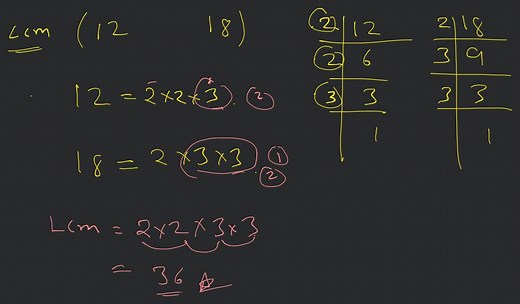 Lcm (12 18)
12 = 2×2×3. ②
18 = 2×3×3 ①
②
Lcm = 2×2×3×3
= 36
② 12
② 6
③ 3
1
2 18
3 9
3 3
1